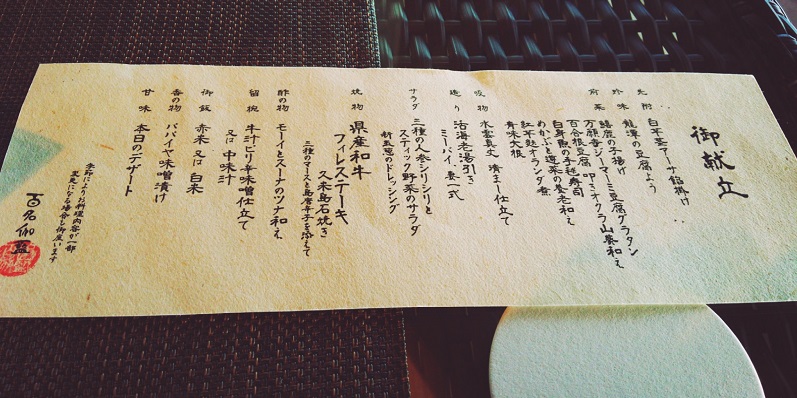 御献立
先附 白平茎アーサ餡掛け
珍味 龍潭の豆腐よう
前菜 鱚鹿の子揚げ
万願寺ジーマーミ豆腐グラタン
百合根豆腐 叩きオクラ山葵和え
白身魚の手毬寿司
めかぶと蓮菜の養老和え
紅芋麩オランダ煮
青味大根
吸物 水雲真丈 清まし仕立て
造り 活海老湯引き
ミーバイ、妻一式
サラダ 二種の人参シリシリと
スティック野菜のサラダ
新玉葱のドレッシング
焼物 県産和牛
フィレステーキ
久米島石焼き
三種のマースと島唐辛子を添えて
酢の物 モーイとスーナのツナ和え
留椀 牛汁ピリ辛味噌仕立て
又は 中味汁
御飯 赤米 又は 白米
香の物 パパイヤ味噌漬け
甘味 本日のデザート
季節によりお料理内容が一部
変更になる場合も御座います
百名伽藍